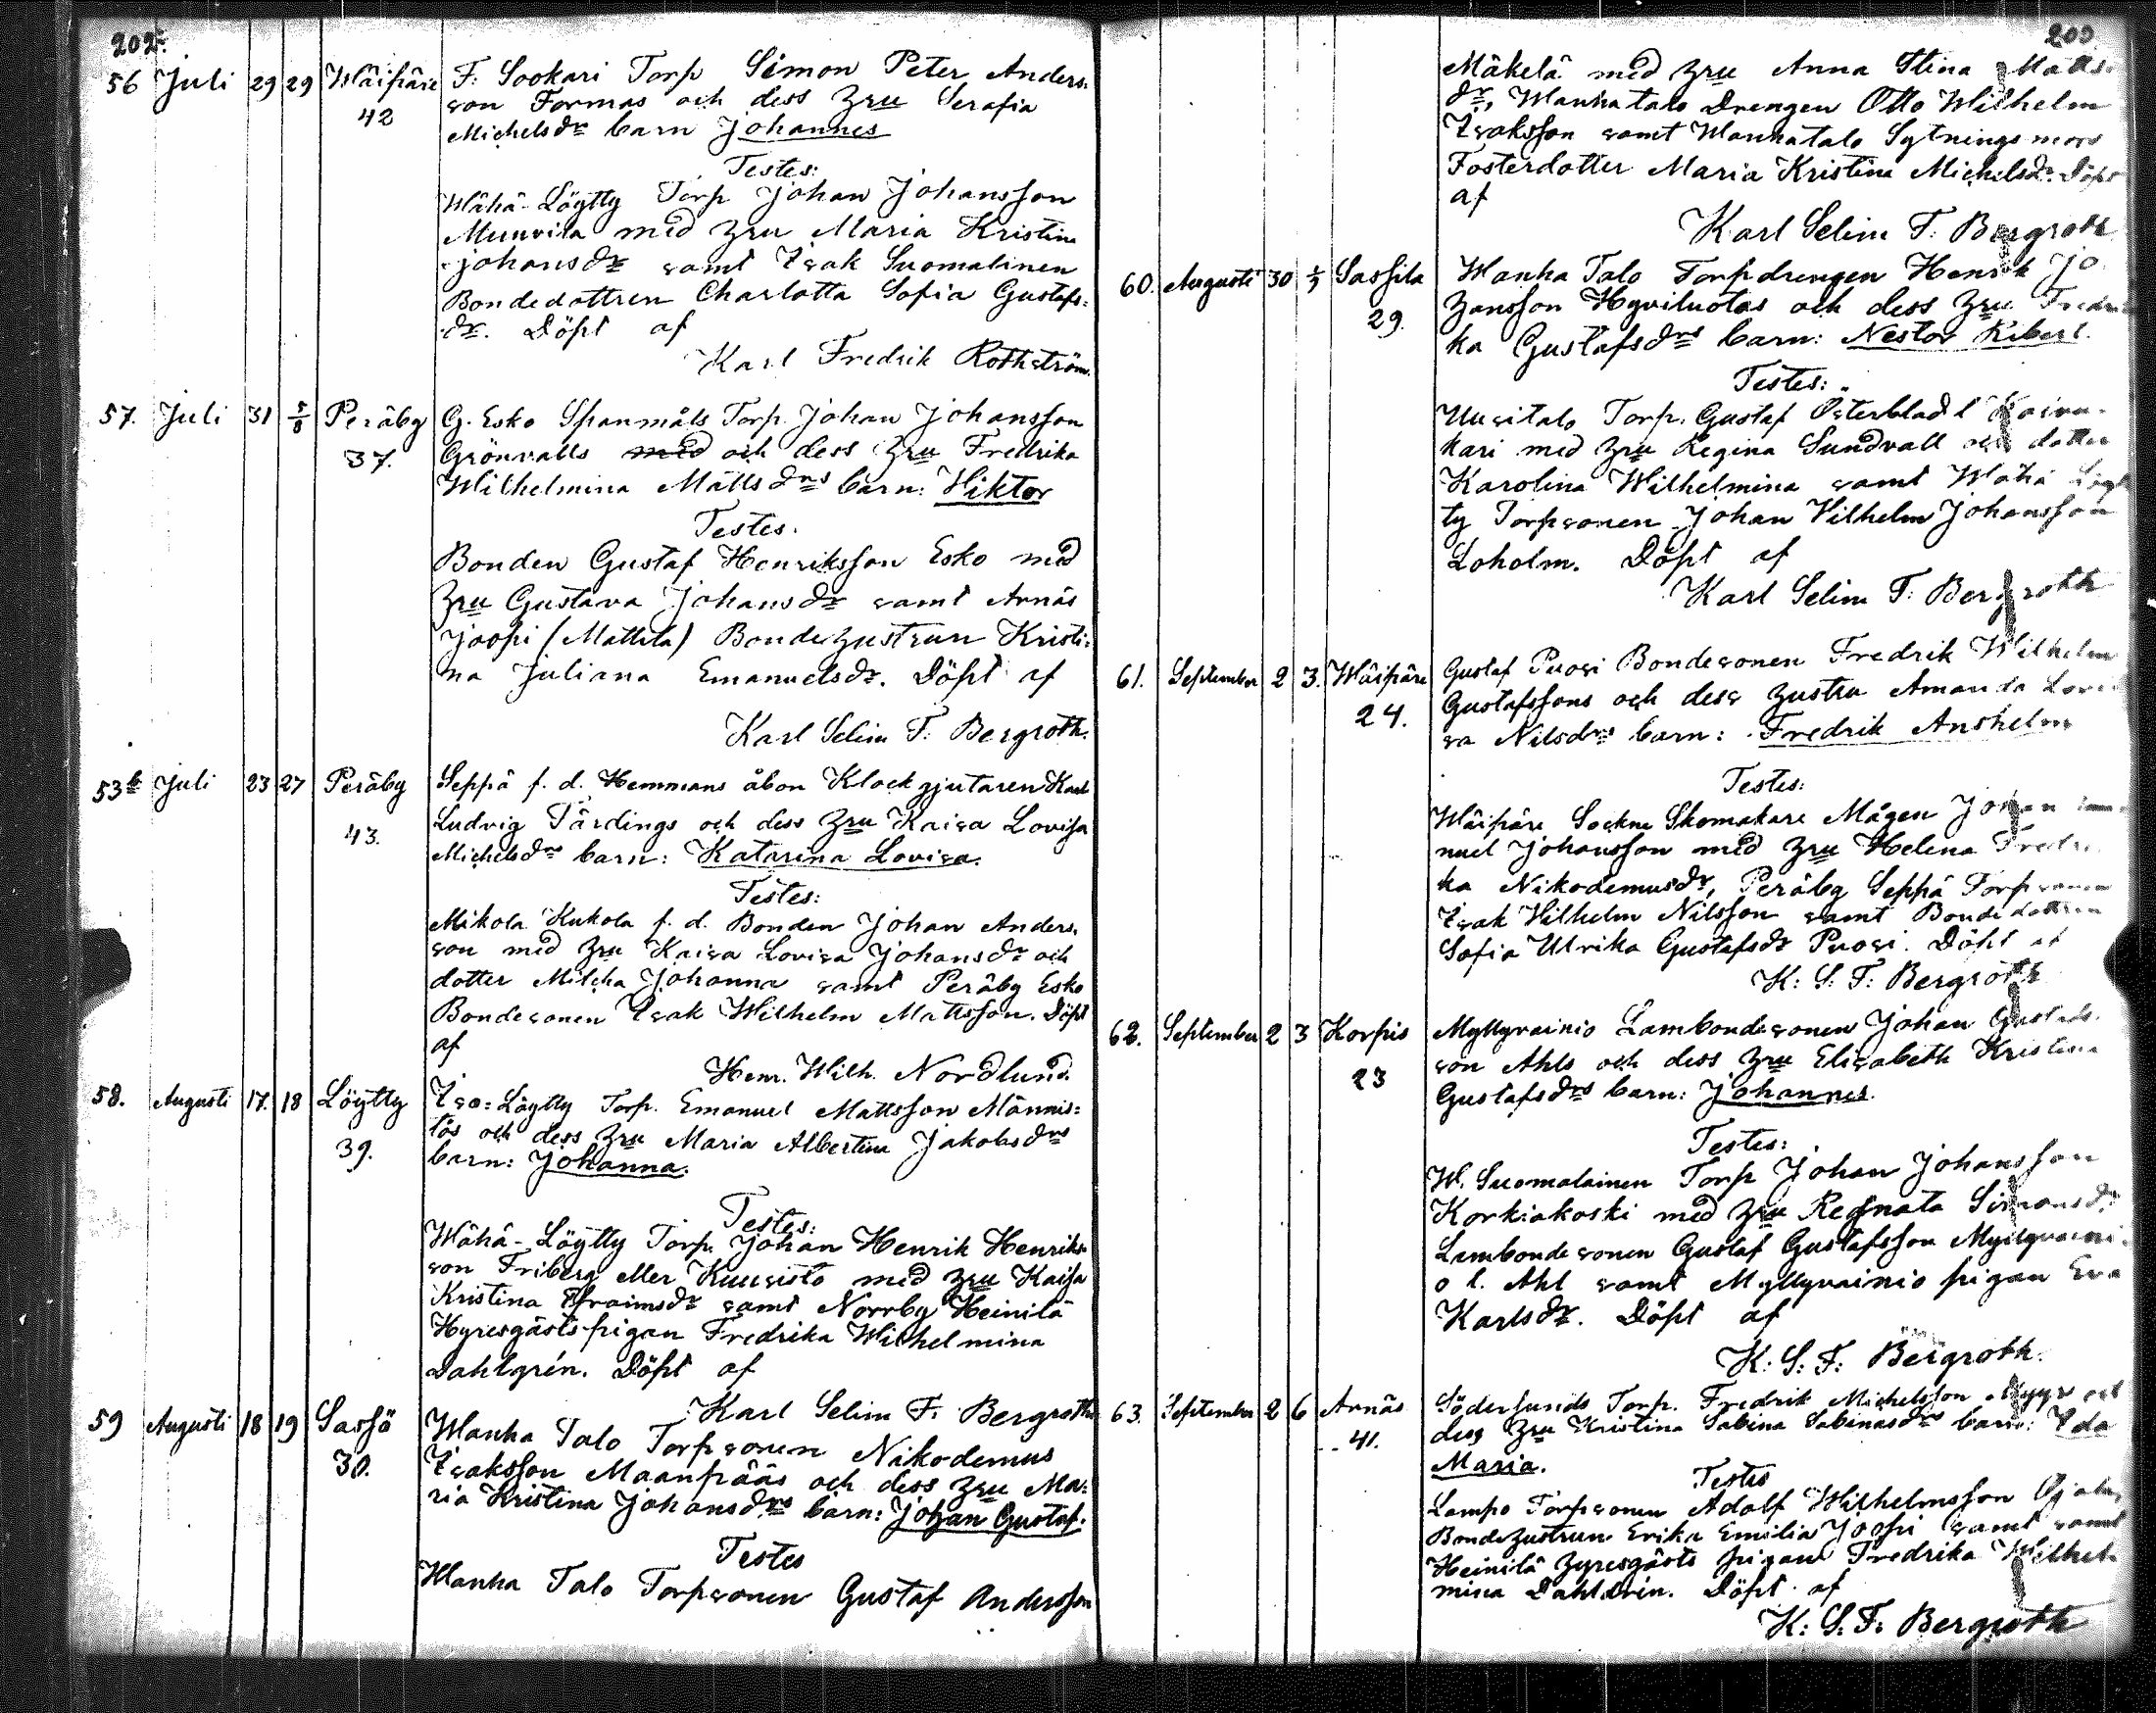 202.
56 Juli 29 29 Wäipäre F: Sookari Torp Simon Peter Anders-
42 son Formas och dess Hru Serafia
Michelsdr barn Johannes
Testes:
Wähä-Löytty Torp Johan Johansson
Muurila med Hru Maria Kristina
Johansdr samt Isak Suomalinen
Bondedottren Charlotta Sofia Gustafs-
dr. Döpt af
Karl Fredrik Rothström.
57. Juli 31 5/8 Peräby G. Esko Spanmåls Torp. Johan Johansson
37. Grönvalls med och dess Hru Fredrika
Wilhelmina Mattsdrs barn: Wiktor
Testes.
Bonden Gustaf Henriksson Esko med
Hru Gustava Johansdr samt Arnäs
Joopi (Mattila) Bondehustrun Kristi-
na Juliana Emanuelsdr. Döpt af
Karl Selim F. Bergroth.
53b Juli 23 27 Peräby Seppä f. d. Hemmans åbon Klockgjutaren Karl
43. Ludvig Tärdings och dess Hru Kaisa Lovisa
Michelsdrs barn: Katarina Lovisa.
Testes:
Mikola Kukola f. d. Bonden Johan Anders-
son med Hru Kaisa Lovisa Johansdr och
dotter Milcha Johanna samt Peräby Esko
Bondesonen Isak Wilhelm Mattsson. Döpt
af
Henr. Wilh. Nordlund.
58. Augusti 17. 18 Löytty Iso-Löytty Torp. Emanuel Mattsson Männis-
39. tös och dess Hru Maria Albertina Jakobsdrs
barn: Johanna.
Testes:
Wähä-Löytty Torp. Johan Henrik Henriks-
son Friberg eller Kuusisto med Hru Kaisa
Kristina Efraimsdr samt Norrby Heinilä
Hyresgästs pigan Fredrika Wilhelmina
Dahlgrén. Döpt af
Karl Selim F. Bergroth
59 Augusti 18 19 Sassi
30. Wanha Talo Torpsonen Nikodemus
Isaksson Maanpääs och dess Hru Ma-
ria Kristina Johansdrs barn: Johan Gustaf.
Testes
Wanha Talo Torpsonen Gustaf Andersson
Mäkelä med Hru Anna Stina Matts-
dr, Wanhatalo Drengen Otto Wilhelm
Isaksson samt Wanhatalo Sytnings mors
Fosterdotter Maria Kristina Michelsdr. Döpt
af
Karl Selim F. Bergroth
60. Augusti 30 1/9 Sassila Wanha Talo Torpdrengen Henrik Jo-
29. hansson Hyviluotos och dess Hru Fredri-
ka Gustafsdrs barn: Nestor Ribert.
Testes:
Uusitalo Torp. Gustaf Österbladh Koivu-
kari med Hru Regina Sundvall och dotter
Karolina Wilhelmina samt Wähä Löyt-
ty Torpsonen Johan Vilhelm Johansson
Loholm. Döpt af
Karl Selim F. Bergroth
61. September 2 3. Wäipäre Gustaf Puosi Bondesonen Fredrik Wilhelm
24. Gustafssons och dess hustru Amanda Lovi-
sa Nilsdrs barn: Fredrik Anshelm
Testes:
Wäipäre Sockne Skomakare Mågen Johan Ema-
nuel Johansson med Hru Helena Fredri-
ka Nikodemusdr, Peräby Seppä Torpsonen
Isak Wilhelm Nilsson samt Bondedottren
Sofia Ulrika Gustafsdr Puosi. Döpt af
K: S: F: Bergroth
62. September 2 3 Korpis Myllyvainio Lambondesonen Johan Gustafs-
23 son Ahls och dess Hru Elisabeth Kristina
Gustafsdrs barn: Johannes.
Testes:
W. Suomalainen Torp Johan Johansson
Korkiakoski med Hru Regnata Simonsdr,
Lambondesonen Gustaf Gustafsson Myllyvaini-
o l. Ahl samt Myllyvainio pigan Eva
Karlsdr. Döpt af
K: S: F: Bergroth.
63. September 2 6 Arnäs Södersunds Torp. Fredrik Michelsson Myyrä och
41. dess Hru Kristina Sabina Sabinasdrs barn: Ida
Maria.
Testes
Lampo Torpsonen Adolf Wilhelmsson
Bondehustrun Erika Emilia Joopi samt samt
Heinilä Hyresgästs pigan Fredrika Wilhel-
mina Dahldrin. Döpt af
K: S: F: Bergroth